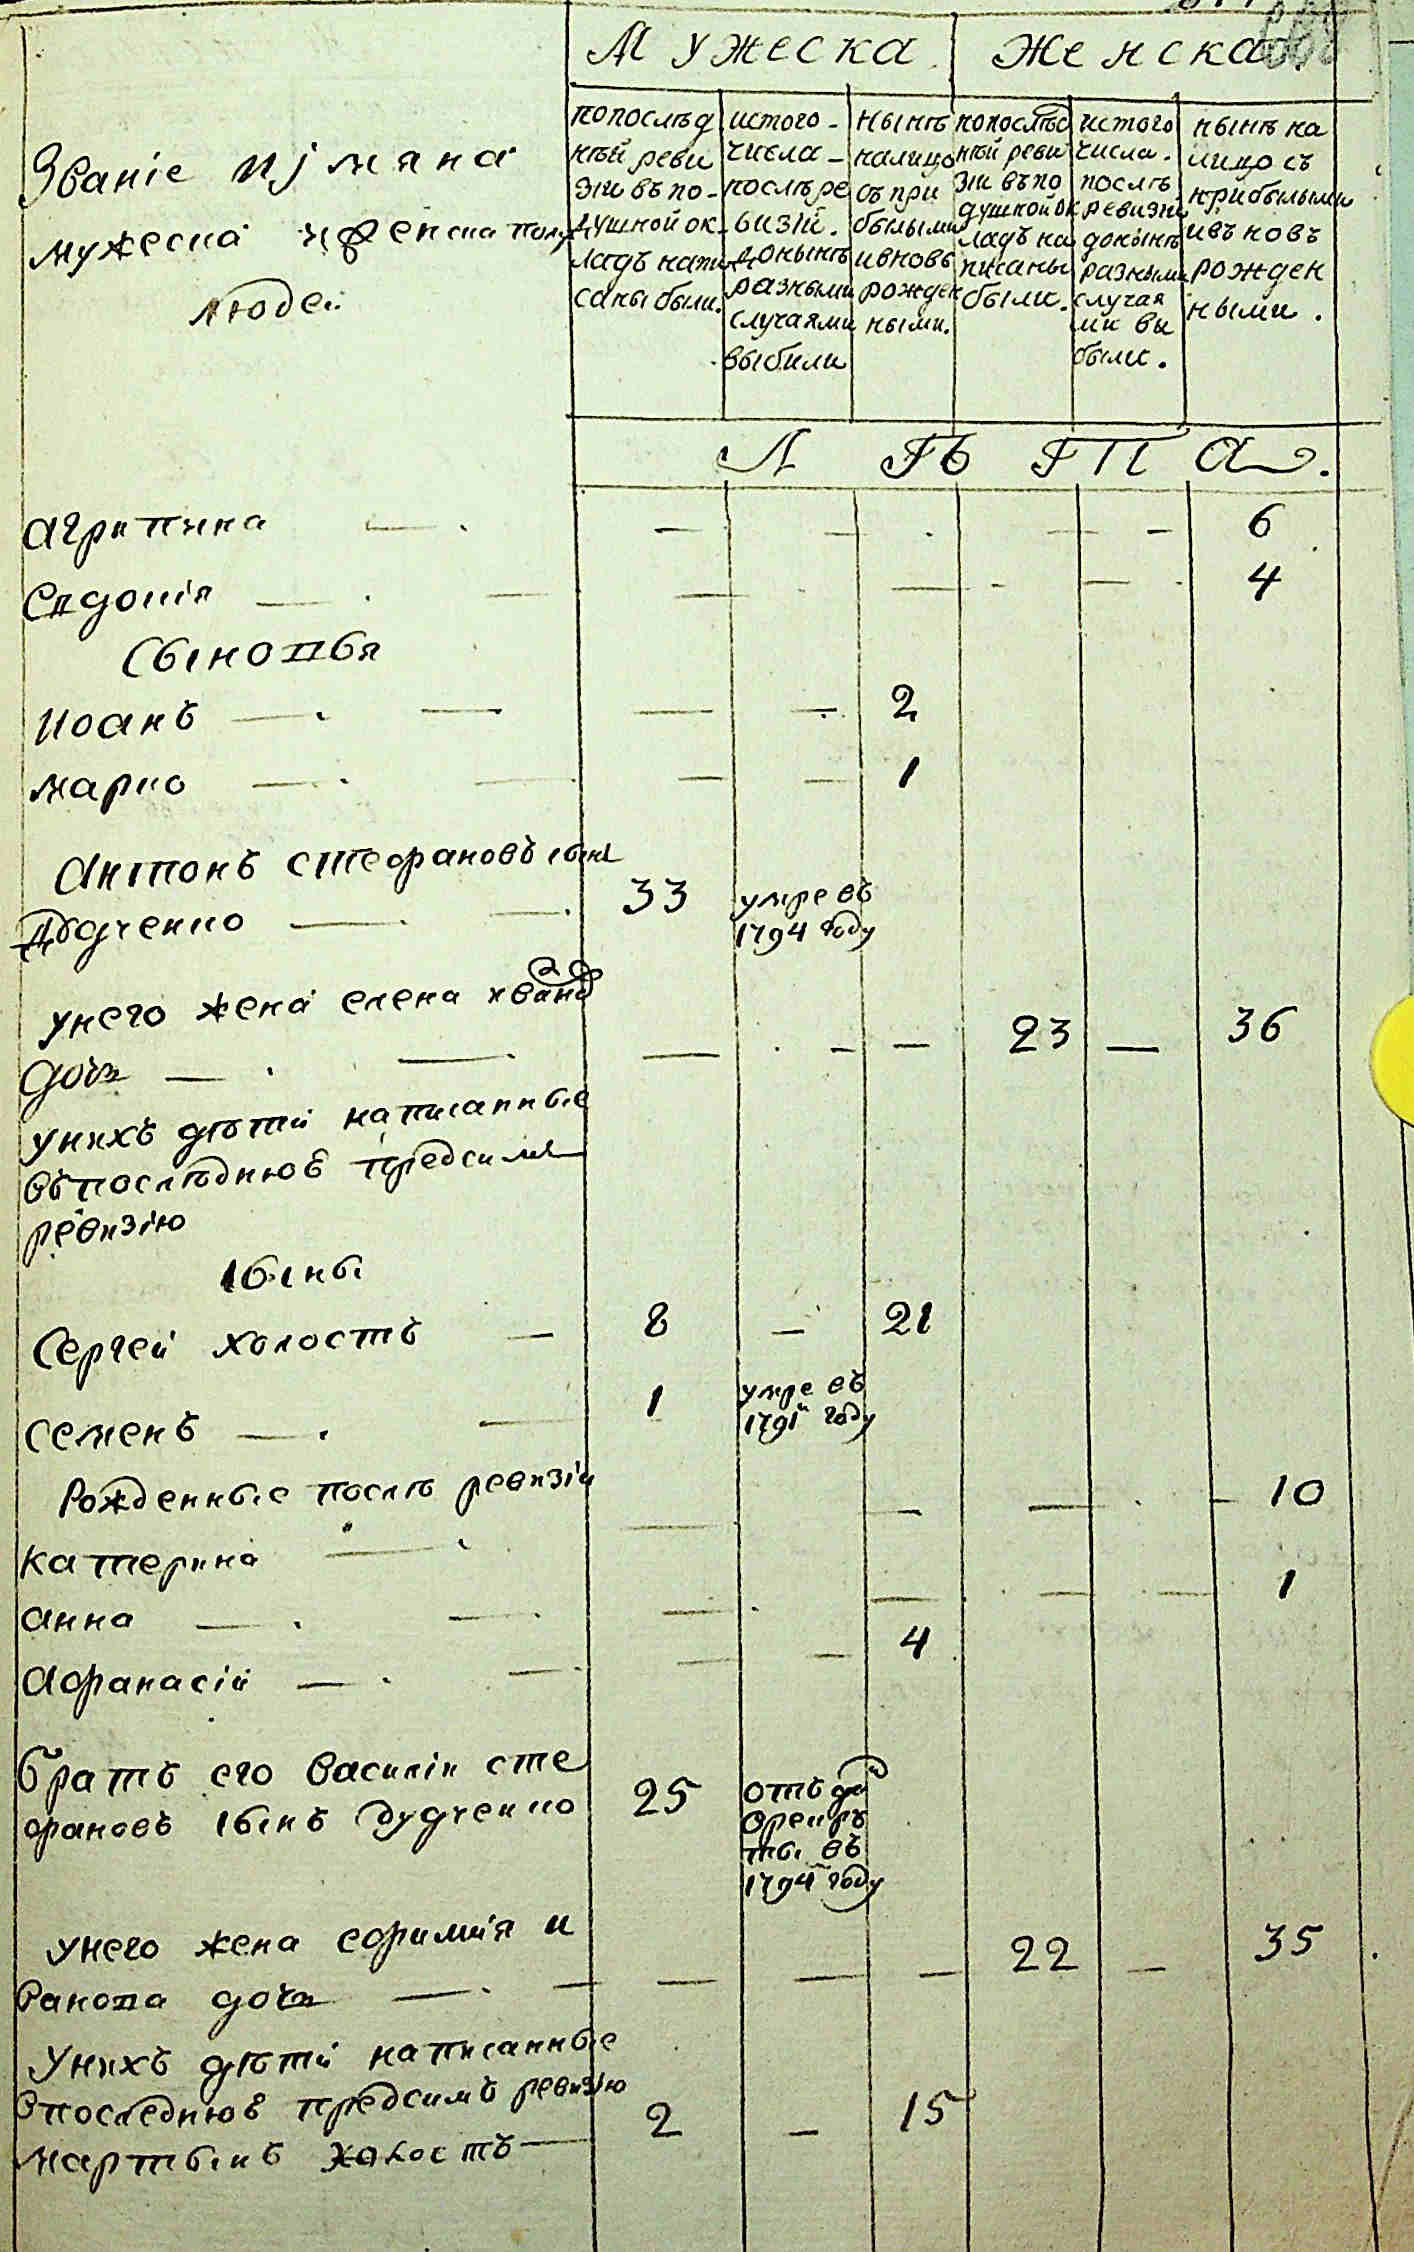 Мужеска Женска
Званіе и имяна
мужеска и женска полу
людей
по послѣд
нѣй реви
зіи въ по-
душной ок
ладъ напи
саны были.
ис того-
числа-
послѣ ре
визіи.
до нынѣ
разными
случаями
выбыли
нынѣ
налицо
съ при
былыми
и вновь
рожден
ными.
по послѣд
нѣй реви
зіи въ по
душной ок
ладъ на
писаны
были.
ис того
числа.
послѣ
ревизіи
до нынѣ
разными
случая
ми вы
были.
нынѣ на
лицо съ
прибылыми
и въновь
рожден
ными.
Л ѣ т а.
агрипина — 6
Евдокія — 4
Сыновья
Иоанъ — 2
марко — 1
Антонъ стефановъ сынъ
Дудченко — 33 умре въ
1794 году
унего жена елена иванова
дочь — 23 — 36
унихъ дѣтей написанные
въпослѣднюю предсимъ
ревизію
сыны
Сергей холостъ — 8 — 21
семенъ — 1 умре въ
1791м году
Рожденные послѣ ревизіи
катерина — 10
анна — 1
Афанасій — 4
братъ его василій сте
фановъ сынъ дудченко 25
въ
1794 году
унего жена ефимія и
ванова дочь — 22 — 35
Унихъ дѣтей написанные
впоследнюю предсимъ ревизію
мартынъ холостъ — 2 — 15